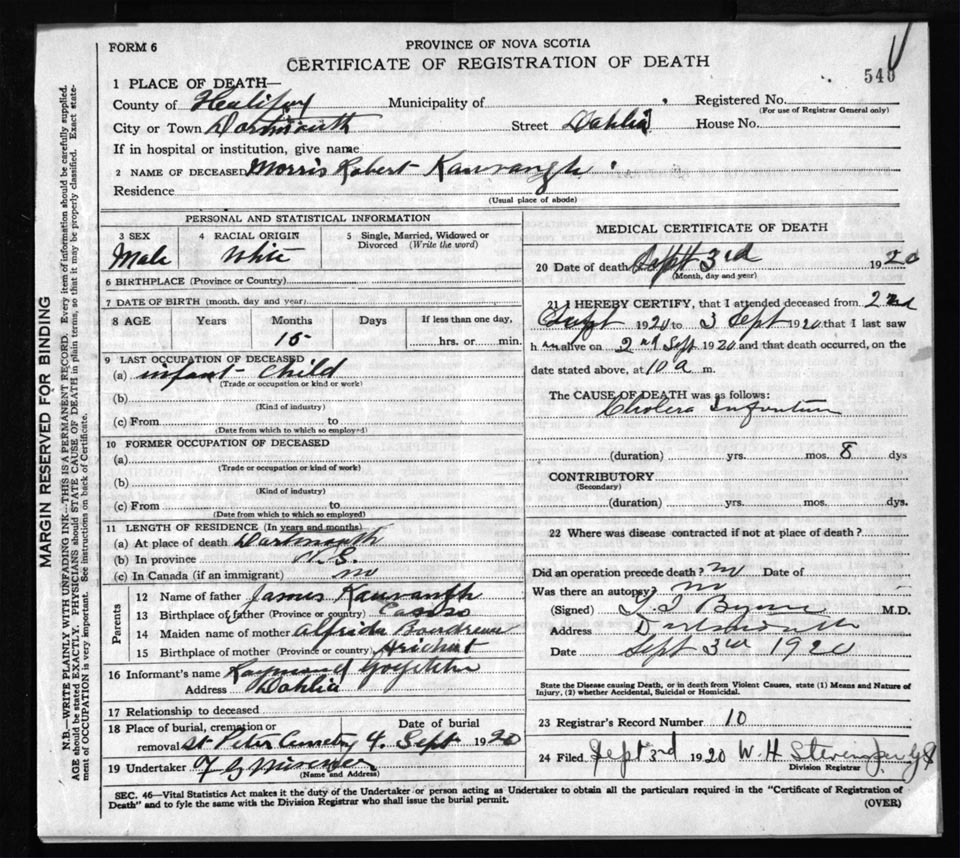 FORM 6
PROVINCE OF NOVA SCOTIA
CERTIFICATE OF REGISTRATION OF DEATH
540
1 PLACE OF DEATH—
County of Halifax Municipality of Registered No.
(For use of Registrar General only)
City or Town Dartmouth Street Dahlia House No.
If in hospital or institution, give name
2 NAME OF DECEASED Morris Robert Kawvangh
Residence
(Usual place of abode)
PERSONAL AND STATISTICAL INFORMATION
3 SEX 4 RACIAL ORIGIN 5 Single, Married, Widowed or Divorced (Write the word)
Male White
6 BIRTHPLACE (Province or Country)
7 DATE OF BIRTH (month, day and year)
8 AGE Years Months Days If less than one day,
15 hrs. or min.
9 LAST OCCUPATION OF DECEASED
(a) infant child
(Trade or occupation or kind or work)
(b)
(Kind of industry)
(c) From to
(Date from which to which so employed)
10 FORMER OCCUPATION OF DECEASED
(a)
(Trade or occupation or kind or work)
(b)
(Kind of industry)
(c) From to
(Date from which to which so employed)
11 LENGTH OF RESIDENCE (In years and months)
(a) At place of death Dartmouth
(b) In province N.S.
(c) In Canada (if an immigrant) no
Parents
12 Name of father James Kawvangh
13 Birthplace of father (Province or country) Canso
14 Maiden name of mother Alfrida Boudreau
15 Birthplace of mother (Province or country) Arichat
16 Informant's name Raymond
Address Dahlia
17 Relationship to deceased
18 Place of burial, cremation or removal St Peter Cemetry Date of burial 4. Sept 1920
19 Undertaker
(Name and Address)
MEDICAL CERTIFICATE OF DEATH
20 Date of death Sept 3rd 1920
(Month, day and year)
21 I HEREBY CERTIFY, that I attended deceased from 2nd
Sept 1920 to 3 Sept 1920 that I last saw
him alive on 2nd Sept 1920 and that death occurred, on the
date stated above, at 10 a m.
The CAUSE OF DEATH was as follows:
Cholera Infantum
(duration) yrs. mos. 8 dys
CONTRIBUTORY
(Secondary)
(duration) yrs. mos. dys.
22 Where was disease contracted if not at place of death?
Did an operation precede death? no Date of
Was there an autopsy? no
(Signed) Byrne M.D.
Address Dartmouth
Date Sept 3rd 1920
State the Disease causing Death, or in death from Violent Causes, state (1) Means and Nature of
Injury, (2) whether Accidental, Suicidal or Homicidal.
23 Registrar's Record Number 10
24 Filed Sept 3rd 1920 W. H.
Division Registrar
SEC. 46—Vital Statistics Act makes it the duty of the Undertaker or person acting as Undertaker to obtain all the particulars required in the "Certificate of Registration of
Death" and to fyle the same with the Division Registrar who shall issue the burial permit. (OVER)
MARGIN RESERVED FOR BINDING
N.B.—WRITE PLAINLY WITH UNFADING INK—THIS IS A PERMANENT RECORD. Every item of information should be carefully supplied.
AGE should be stated EXACTLY. PHYSICIANS should STATE CAUSE OF DEATH in plain terms, so that it may be properly classified. Exact statement of OCCUPATION is very important. See instructions on back of Certificate.